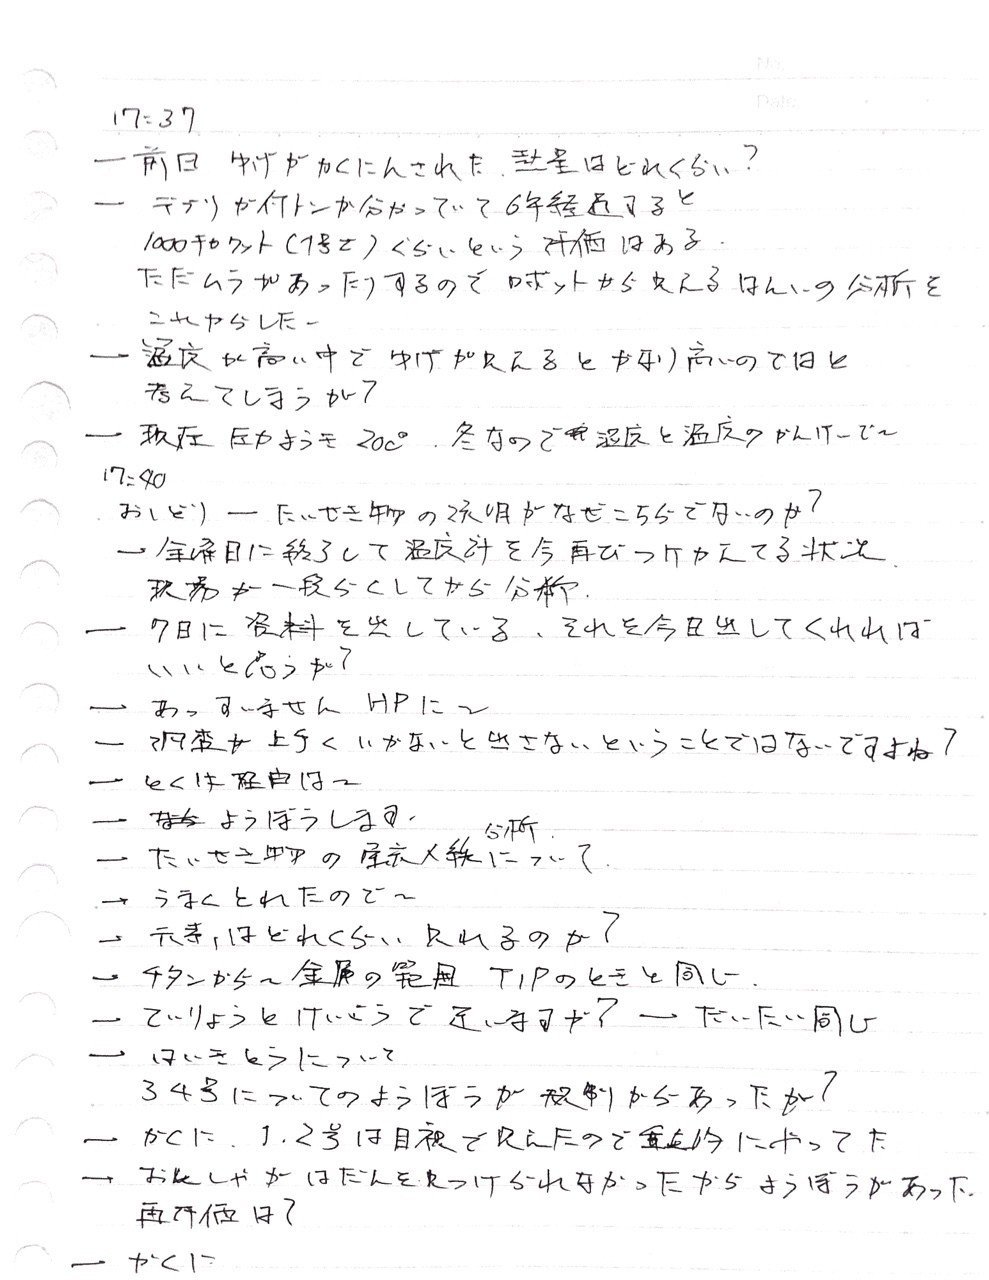 No.
Date
17:37
— 前日 ゆげがかくにんされた、熱量はどれくらい?
— デブリが何トンか分かっていて6年経過すると
1000キロワット(1号さ)くらいという評価はある.
ただムラがあったりするのでロボットから見えるはんいの分析を
これからした〜
— 温度が高い中でゆげが見えるとかなり高いのではと
考えてしまうが?
— 現在 圧力ようき 20c° . 冬なので 湿度と温度のかんけーで〜
17:40
おしどり — たいせき物の説明がなぜこちらでないのか?
— 金曜日に終了して温度計を今再びつけかえてる状況
現場が一段らくしてから分析.
— 7日に資料を出している、それを今日出してくれれば
いいと思うが?
— あっすいません HPに〜
— 調査が上手くいかないと出さないということではないですよね?
— とくに理由は〜
— ようぼうします.
— たいせき物の 分析 について.
→ うまくとれたので〜
→ 元素はどれくらい見れるのか?
→ チタンから〜金属の範囲 TIPのときと同じ.
— ていりょうとけいこうで違いますか? — だいたい同じ
→ はいきとうについて
34号についてのようぼうが規制からあったが?
— かくに、1.2号は目視で見えたので重点的にやってた
→ おせんしゃがはだんを見つけられなかったからようぼうがあった.
再評価は?
— かくに